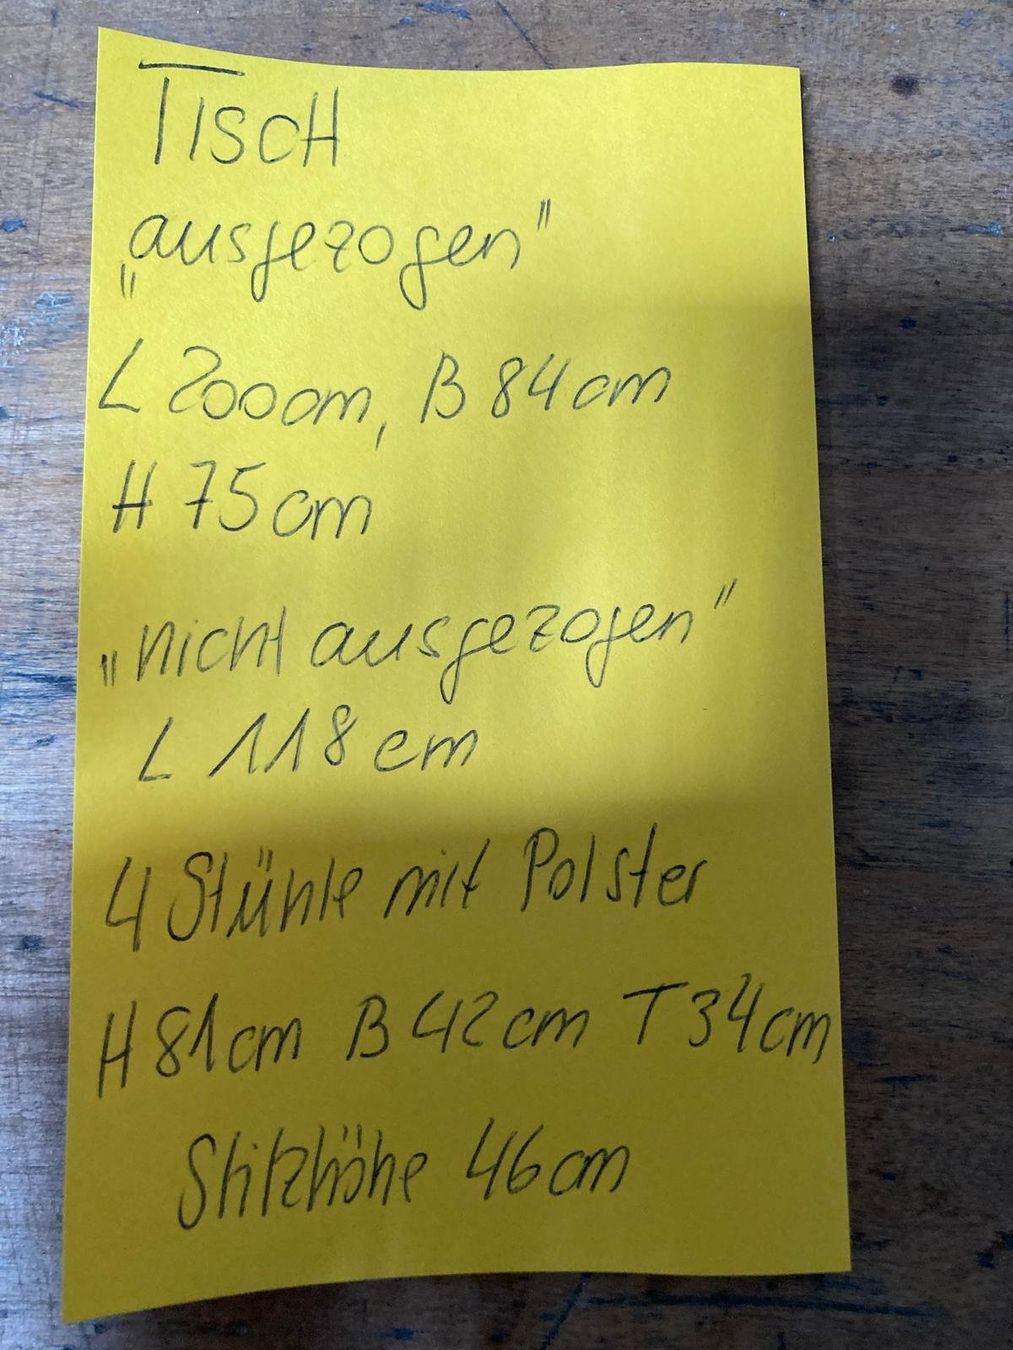 TISCH
„ausgezogen"
L 200cm, B 84cm
H 75cm
„nicht ausgezogen"
L 118cm
4 Stühle mit Polster
H 81cm B 42cm T 34cm
Stitzhöhe 46cm